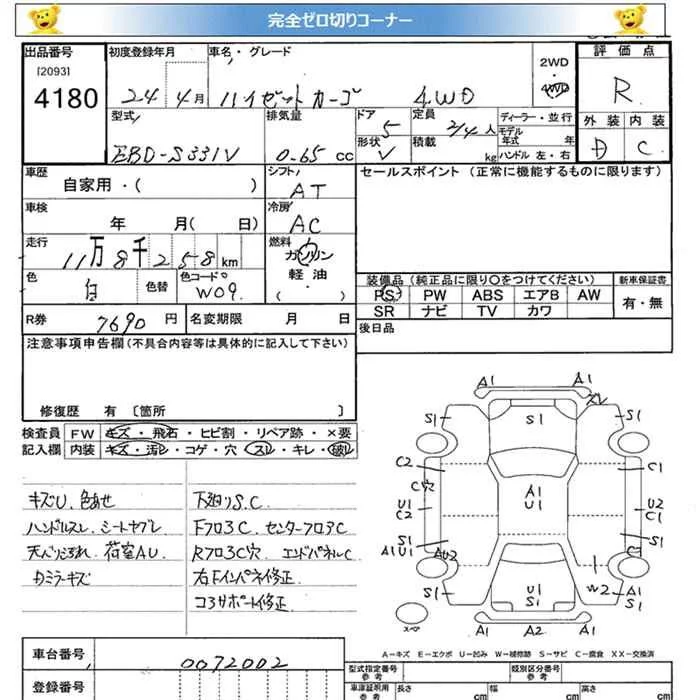 完全ゼロ切りコーナー
出品番号
[2093]
4180
初度登録年月
24 4月
車名・グレード
ハイゼットカーゴ 4WD
2WD
4WD
評価点
R
型式
EBD-S331V
排気量
0.65 cc
ドア
5
形状
V
定員
2/4人
積載
kg
ディーラー・並行
モデル
年式 年
ハンドル 左・右
外装 内装
D C
車歴
自家用・( )
シフト
AT
車検
年 月( 日)
冷房
AC
走行
11万8千258km
燃料
ガソリン
軽油
( )
色
白
色替
色コードNo
W09
R券
7690 円
名変期限 月 日
セールスポイント (正常に機能するものに限ります)
装備品(純正品に限り○をつけてください)
新車保証書
PS PW ABS エアB AW
有・無
SR ナビ TV カワ
後日品
注意事項申告欄(不具合内容等は具体的に記入して下さい)
修復歴 有 [箇所 ]
検査員
記入欄
FW キズ・飛石・ヒビ割・リペア跡・×要
内装 キズ・汚レ・コゲ・穴 スレ・キレ・破レ
キズU、色あせ
ハンドルスレ、シートヤブレ
天ベリ汚れ、荷室AU、
カミラーキズ
下廻りS.C
Fフロ3C、センターフロアC
Rフロ3C穴 エンドパネルC
右Fインパネ修正
コアサポート修正
A1 A1
S1 S1 ズレ S1
C2 C1
C穴
A1
U1
U1
C2
U2
C1
S1
A1U1
AU2
S1
C2
W2 A1
U1
S1
S1 S1
A1 A2 A1
スペア
A-キズ E-エクボ U-凹み W-補修跡 S-サビ C-腐食 XX-交換済
車台番号
0072002
登録番号
型式指定番号
参考
類別区分番号
参考
車庫証明用
参考
長さ cm
幅 cm
高さ cm